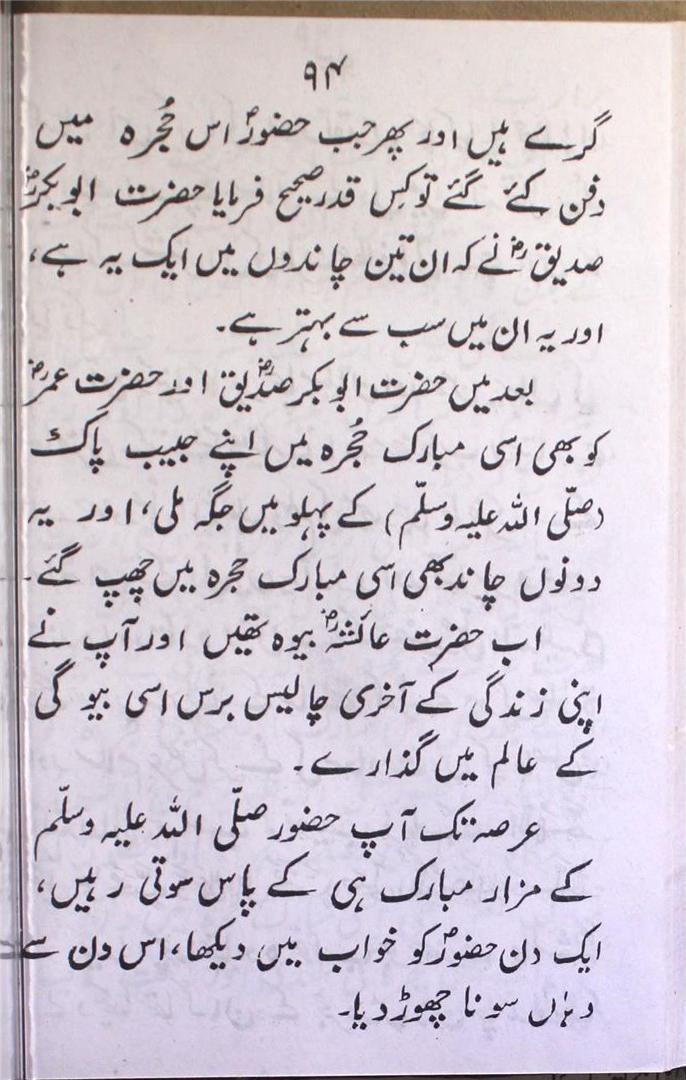 ۹۴
گرے ہیں اور پھر جب حضورؐ اس حُجرہ میں
دفن کئے گئے تو کس قدر صحیح فرمایا حضرت ابوبکرؓ
صدیقؓ نے کہ ان تین چاندوں میں ایک یہ ہے،
اور یہ ان میں سب سے بہتر ہے۔
بعد میں حضرت ابوبکر صدّیقؓ اور حضرت عمرؓ
کو بھی اسی مبارک حُجرہ میں اپنے حبیب پاک
(صلّی اللہ علیہ وسلّم) کے پہلو میں جگہ ملی، اور یہ
دونوں چاند بھی اسی مبارک حجرہ میں چھپ گئے۔
اب حضرت عائشہؓ بیوہ تھیں اور آپ نے
اپنی زندگی کے آخری چالیس برس اسی بیوگی
کے عالم میں گذارے۔
عرصہ تک آپ حضور صلّی اللہ علیہ وسلّم
کے مزار مبارک ہی کے پاس سوتی رہیں،
ایک دن حضورؐ کو خواب میں دیکھا، اس دن سے
وہاں سونا چھوڑ دیا۔